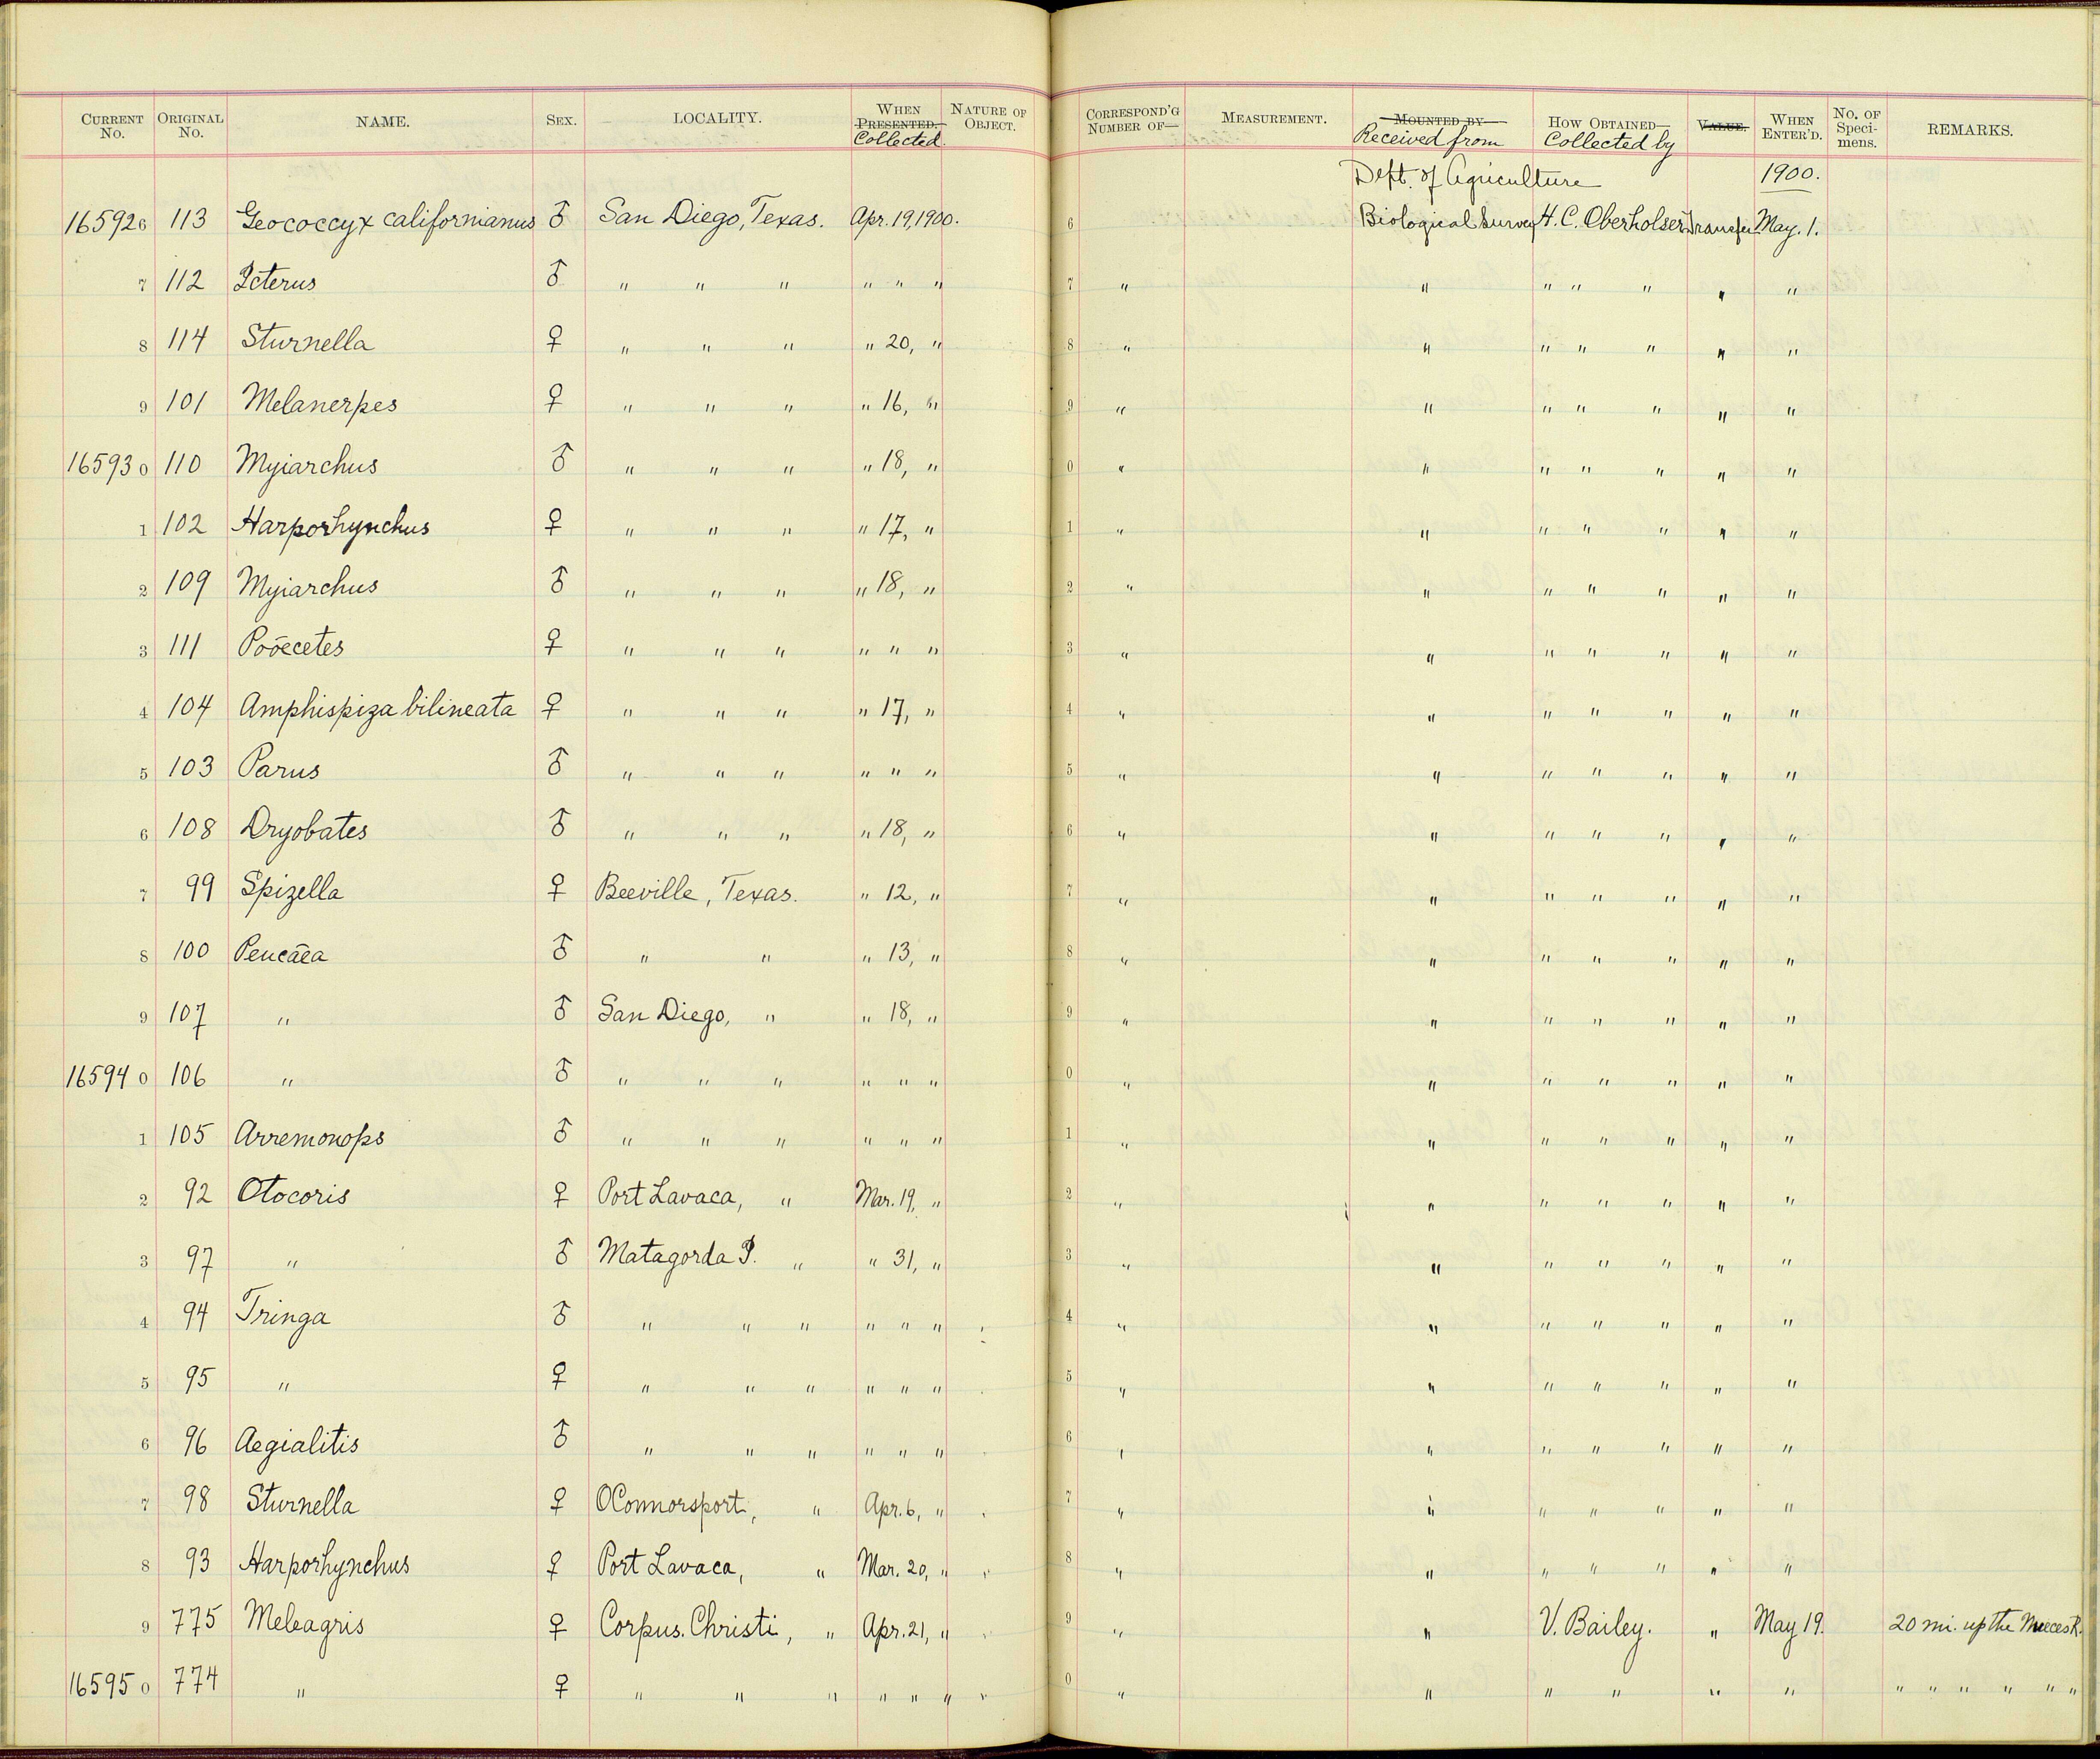 CURRENT No. ORIGINAL No. NAME. SEX. LOCALITY. WHEN PRESENTED. Collected. NATURE OF OBJECT. CORRESPOND'G NUMBER OF— MEASUREMENT. MOUNTED BY Received from HOW OBTAINED— Collected by VALUE. WHEN ENTER'D. No. OF Speci- mens. REMARKS.
Dept. of Agriculture 1900.
165926 113 Geococcyx californianus ♂ San Diego, Texas. Apr. 19, 1900. 6 Biological Survey H. C. Oberholser Transfer May. 1.
7 112 Icterus ♂ " " " " " " 7 " " " " " " "
8 114 Sturnella ♀ " " " " 20, " 8 " " " " " " "
9 101 Melanerpes ♀ " " " " 16, " 9 " " " " " " "
165930 110 Myiarchus ♂ " " " " 18, " 0 " " " " " " "
1 102 Harporhynchus ♀ " " " " 17, " 1 " " " " " " "
2 109 Myiarchus ♂ " " " " 18, " 2 " " " " " " "
3 111 Poōecetes ♀ " " " " " " 3 " " " " " " "
4 104 Amphispiza bilineata ♀ " " " " 17, " 4 " " " " " " "
5 103 Parus ♂ " " " " " " 5 " " " " " " "
6 108 Dryobates ♂ " " " " 18, " 6 " " " " " " "
7 99 Spizella ♀ Beeville, Texas. " 12, " 7 " " " " " " "
8 100 Peucāea ♂ " " " 13, " 8 " " " " " " "
9 107 " ♂ San Diego, " " 18, " 9 " " " " " " "
165940 106 " ♂ " " " " " " 0 " " " " " " "
1 105 Arremonops ♂ " " " " " " 1 " " " " " " "
2 92 Otocoris ♀ Port Lavaca, " Mar. 19, " 2 " " " " " " "
3 97 " ♂ Matagorda I. " " 31, " 3 " " " " " " "
4 94 Tringa ♂ " " " " " " 4 " " " " " " "
5 95 " ♀ " " " " " " 5 " " " " " " "
6 96 Aegialitis ♂ " " " " " " 6 " " " " " " "
7 98 Sturnella ♀ OConnorsport, " Apr. 6, " 7 " " " " " " "
8 93 Harporhynchus ♀ Port Lavaca, " Mar. 20, " 8 " " " " " " "
9 775 Meleagris ♀ Corpus. Christi, " Apr. 21, " 9 " " V. Bailey. " May 19. 20 mi. up the Nueces R.
165950 774 " ♀ " " " " " " 0 " " " " " " " " " " " "